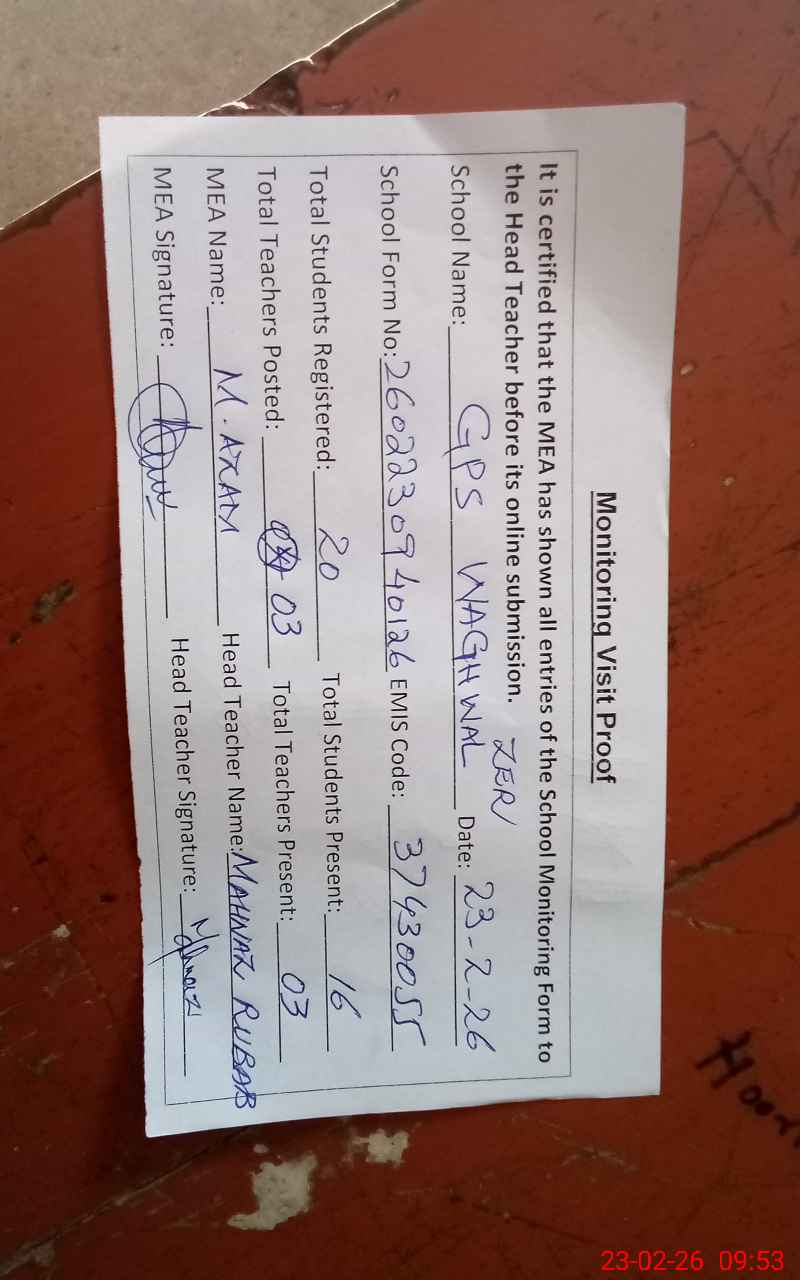 Monitoring Visit Proof
It is certified that the MEA has shown all entries of the School Monitoring Form to
the Head Teacher before its online submission.
School Name: GPS WAGHWAL ZERI Date: 23-2-26
School Form No: 2602230940126 EMIS Code: 37430055
Total Students Registered: 20 Total Students Present: 16
Total Teachers Posted: 03 Total Teachers Present: 03
MEA Name: M. AKAM Head Teacher Name: MAHNAZ RUBAB
MEA Signature: Head Teacher Signature:
23-02-26 09:53